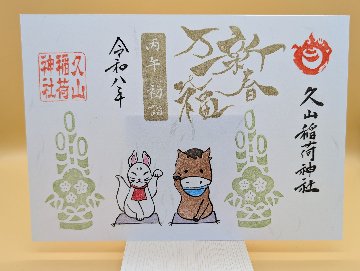 久山稲荷神社
新春
万福
丙午 初詣
令和八年
久山
稲荷
神社